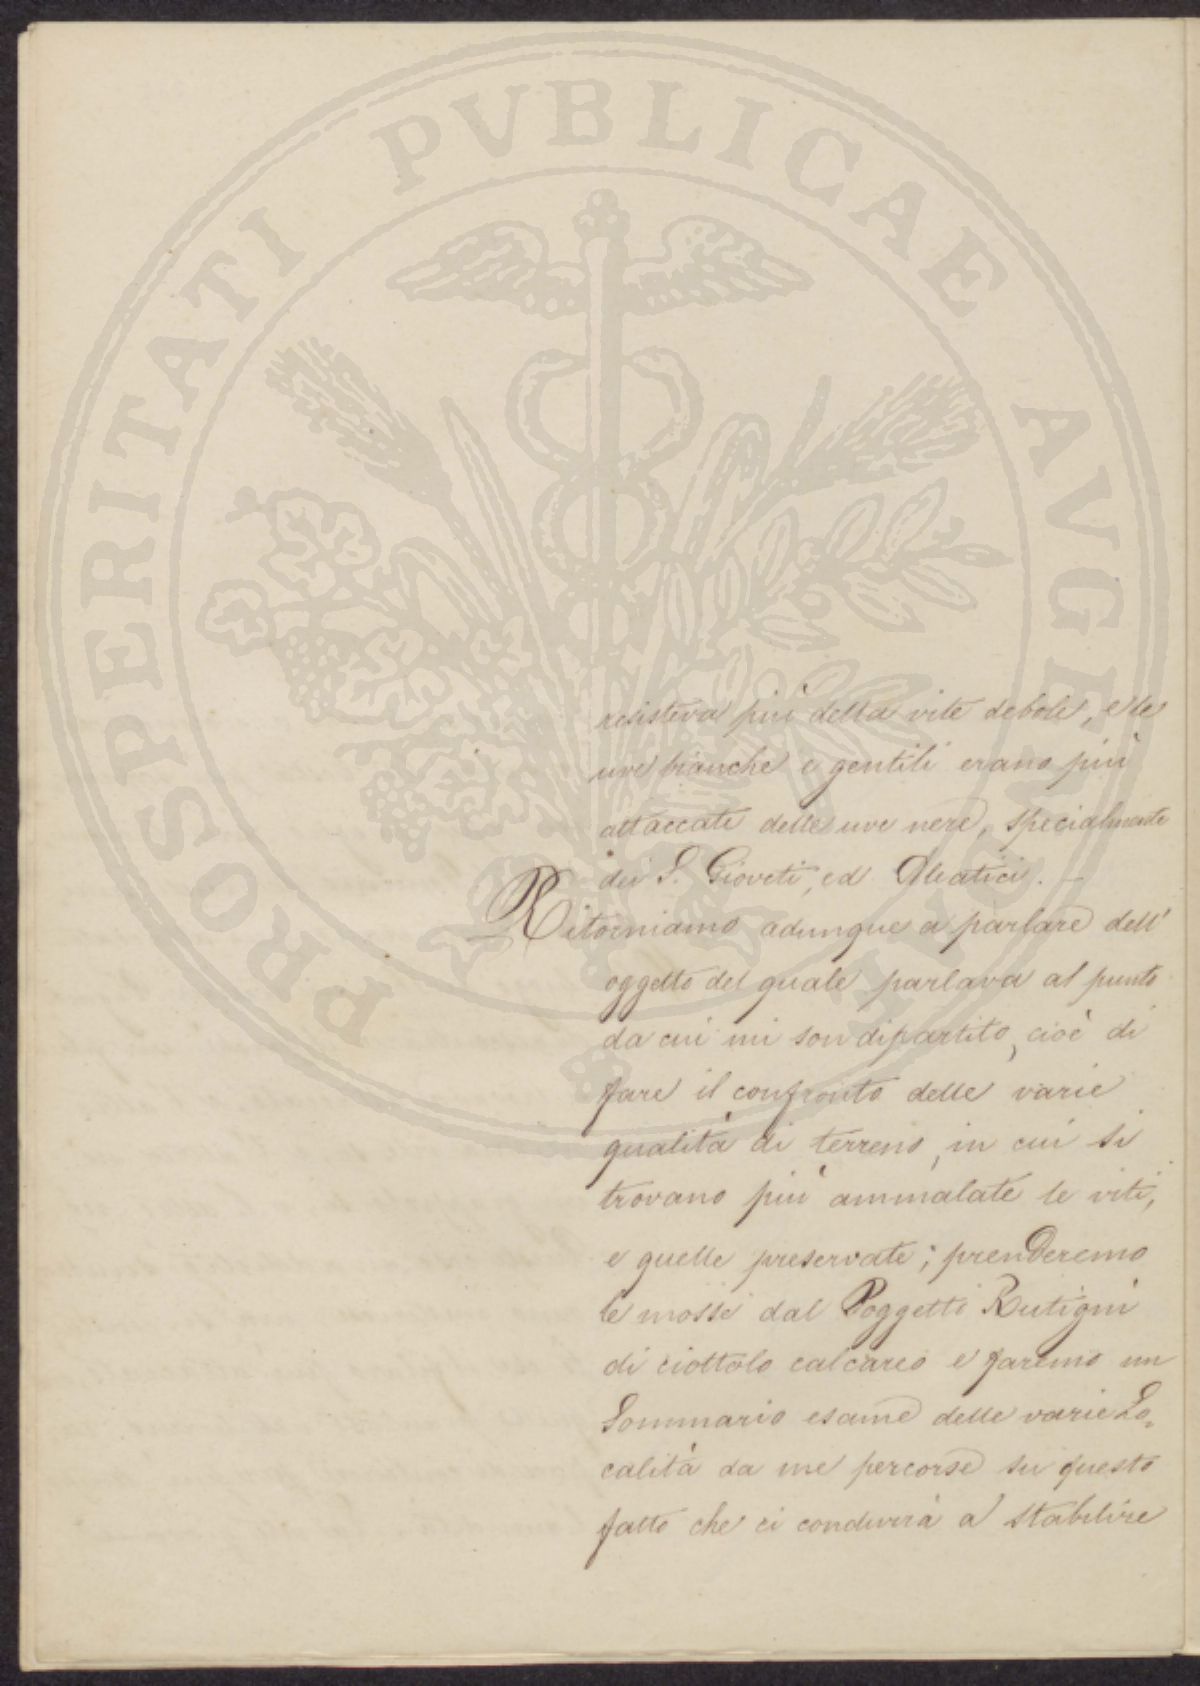 PROSPERITATI PVBLICAE AVGENDAE
resisteva più della vite debole, e le
uve bianche e gentili erano più
attaccate delle uve nere, specialmente
dei S. Gioveti, ed Aleatici. —
Ritorniamo adunque a parlare dell'
oggetto del quale parlava al punto
da cui mi son dipartito, cioè di
fare il confronto delle varie
qualità di terreno, in cui si
trovano più ammalate le viti,
e quelle preservate; prenderemo
le mosse dal Poggetti Rutigni
di ciottolo calcareo e faremo un
Sommario esame delle varie Lo=
calità da me percorse su questo
fatto che ci condurrà a stabilire